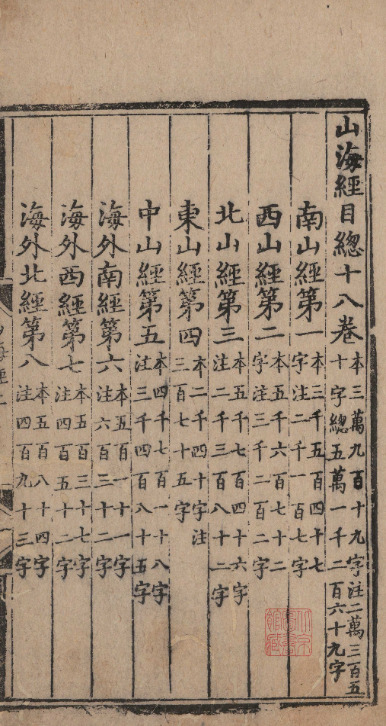 山海經目總十八卷本三萬九百十九字注二萬三百五十字總五萬一千二百六十九字
南山經第一本三千五百四十七字注二千一百七字
西山經第二本五千六百七十二字注三千二百二字
北山經第三本五千七百四十六字注二千三百八十二字
東山經第四本二千四十字注三百七十五字
中山經第五本四千七百一十八字注三千四百八十五字
海外南經第六本五百一十一字注六百三十二字
海外西經第七本五百三十七字注四百五十二字
海外北經第八本五百八十四字注四百九十三字